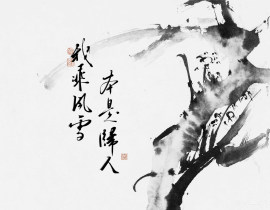 我乘风雪
本是归人